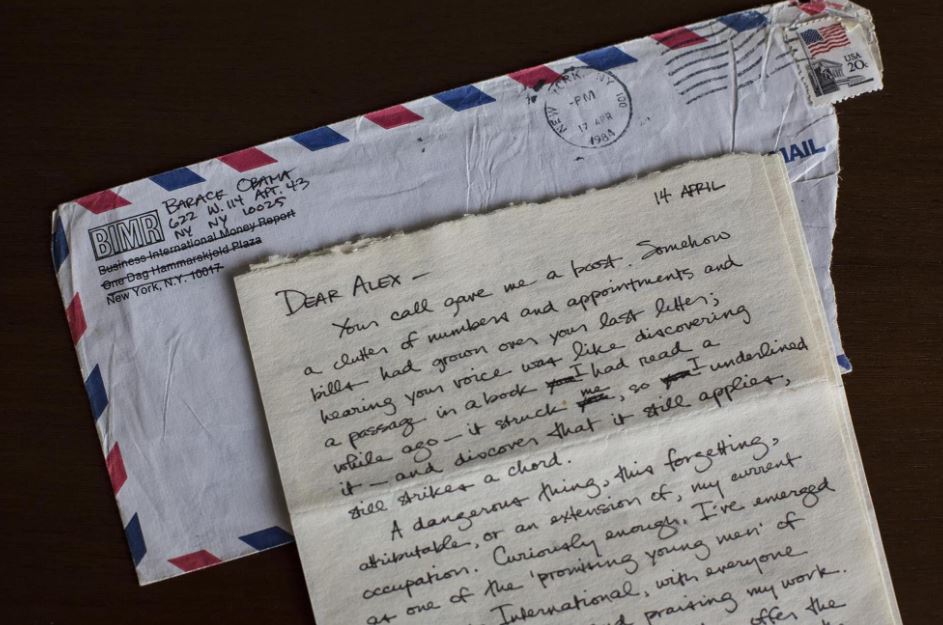 BARACK OBAMA
622 W. 114 APT. 43
NY NY 10025
BIMR
Business International Money Report
One Dag Hammarskjold Plaza
New York, N.Y. 10017
NEW YORK, NY 100
-PM
17 APR
1984
USA
20c
MAIL
14 APRIL
DEAR ALEX –
Your call gave me a boost. Somehow
a clutter of numbers and appointments and
bills had grown over your last letter;
hearing your voice was like discovering
a passage in a book you I had read a
while ago – it struck me, so you I underlined
it – and discover that it still applies,
still strikes a chord.
A dangerous thing, this forgetting,
attributable, or an extension of, my current
occupation. Curiously enough, I've emerged
as one of the 'promising young men' of
International, with everyone
praising my work.
offer the